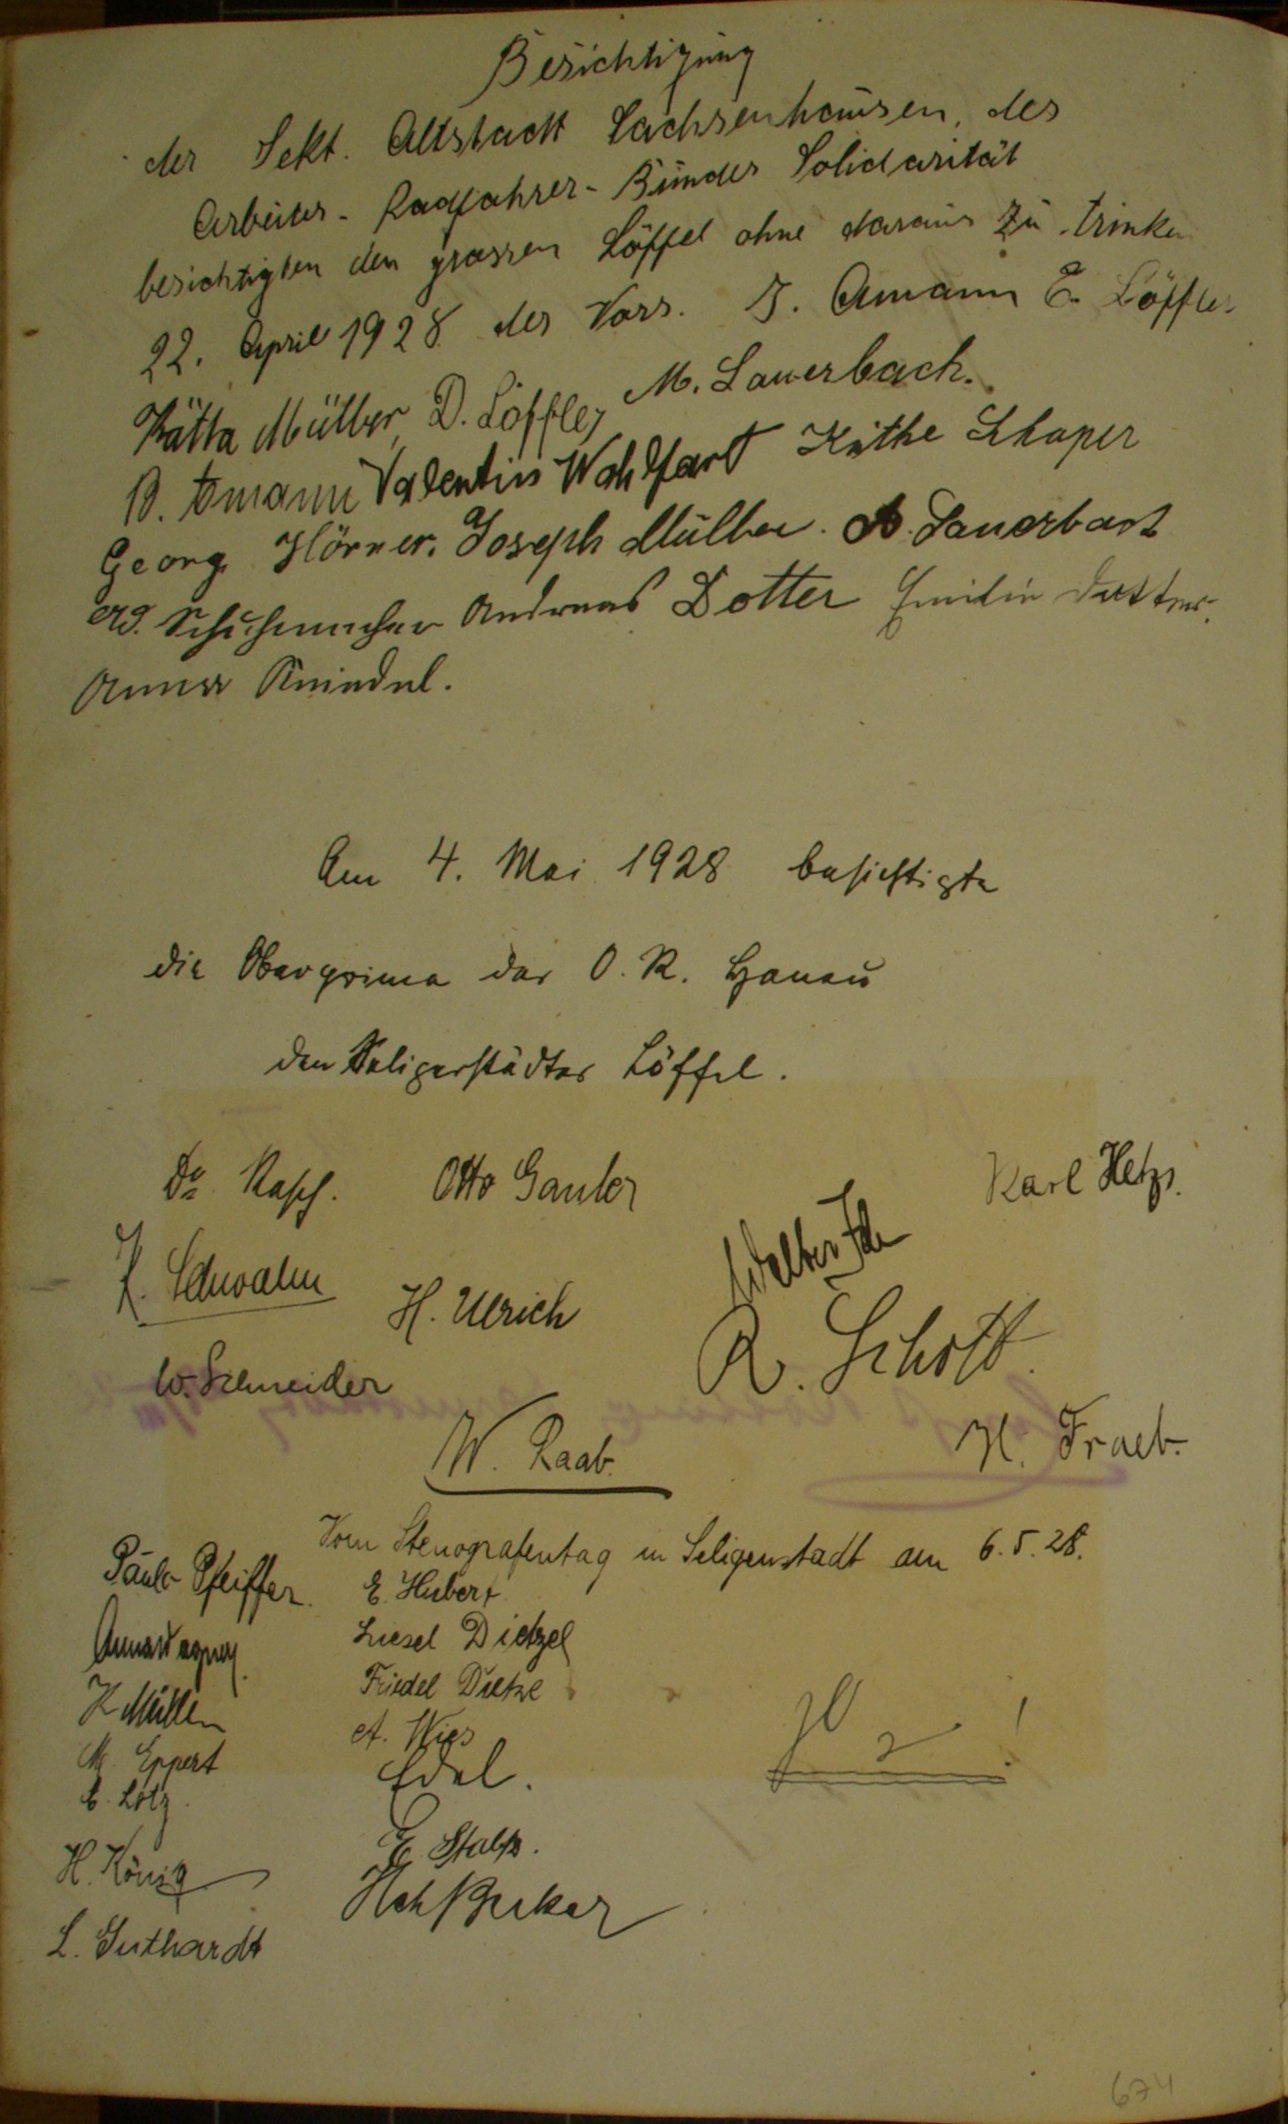 Besichtigung
der Sekt. Altstadt Sachsenhausen, des
Arbeiter-Radfahrer-Bundes Solidarität
besichtigten den grossen Löffel ohne daraus zu trinken
22. April 1928 der Vors. J. Amann E. Löffler
Kätta Müller, D. Löffler M. Lauerbach.
B. Amann Valentin Wohlfart Käthe Schaper
Georg Hörner. Joseph Müller. A. Lauerbach
Ad. Schuhmacher Andreas Dotter Emilie Dotter.
Anna Kneidel.
Am 4. Mai 1928 besichtigte
die Oberprima der O. R. Hanau
den Seligenstädter Löffel.
Dr. Otto Karl
K. Schwalm H. Ulrich Walter
W. Schneider R. Schott
W. Raab H. Traeb.
Vom Stenografentag in Seligenstadt am 6.5.28.
Paula Pfeiffer. E. Hubert
Anna Wagner. Liesel Dietzel
K Müller Friedel Dietze
M. Eppert A. Wies
E. Lotz Edel.
H. König E.
L. Guthardt Hch Becker
674